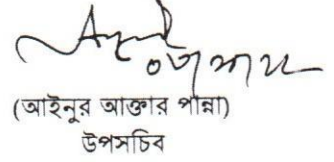 (আইনুর আক্তার পান্না)
উপসচিব